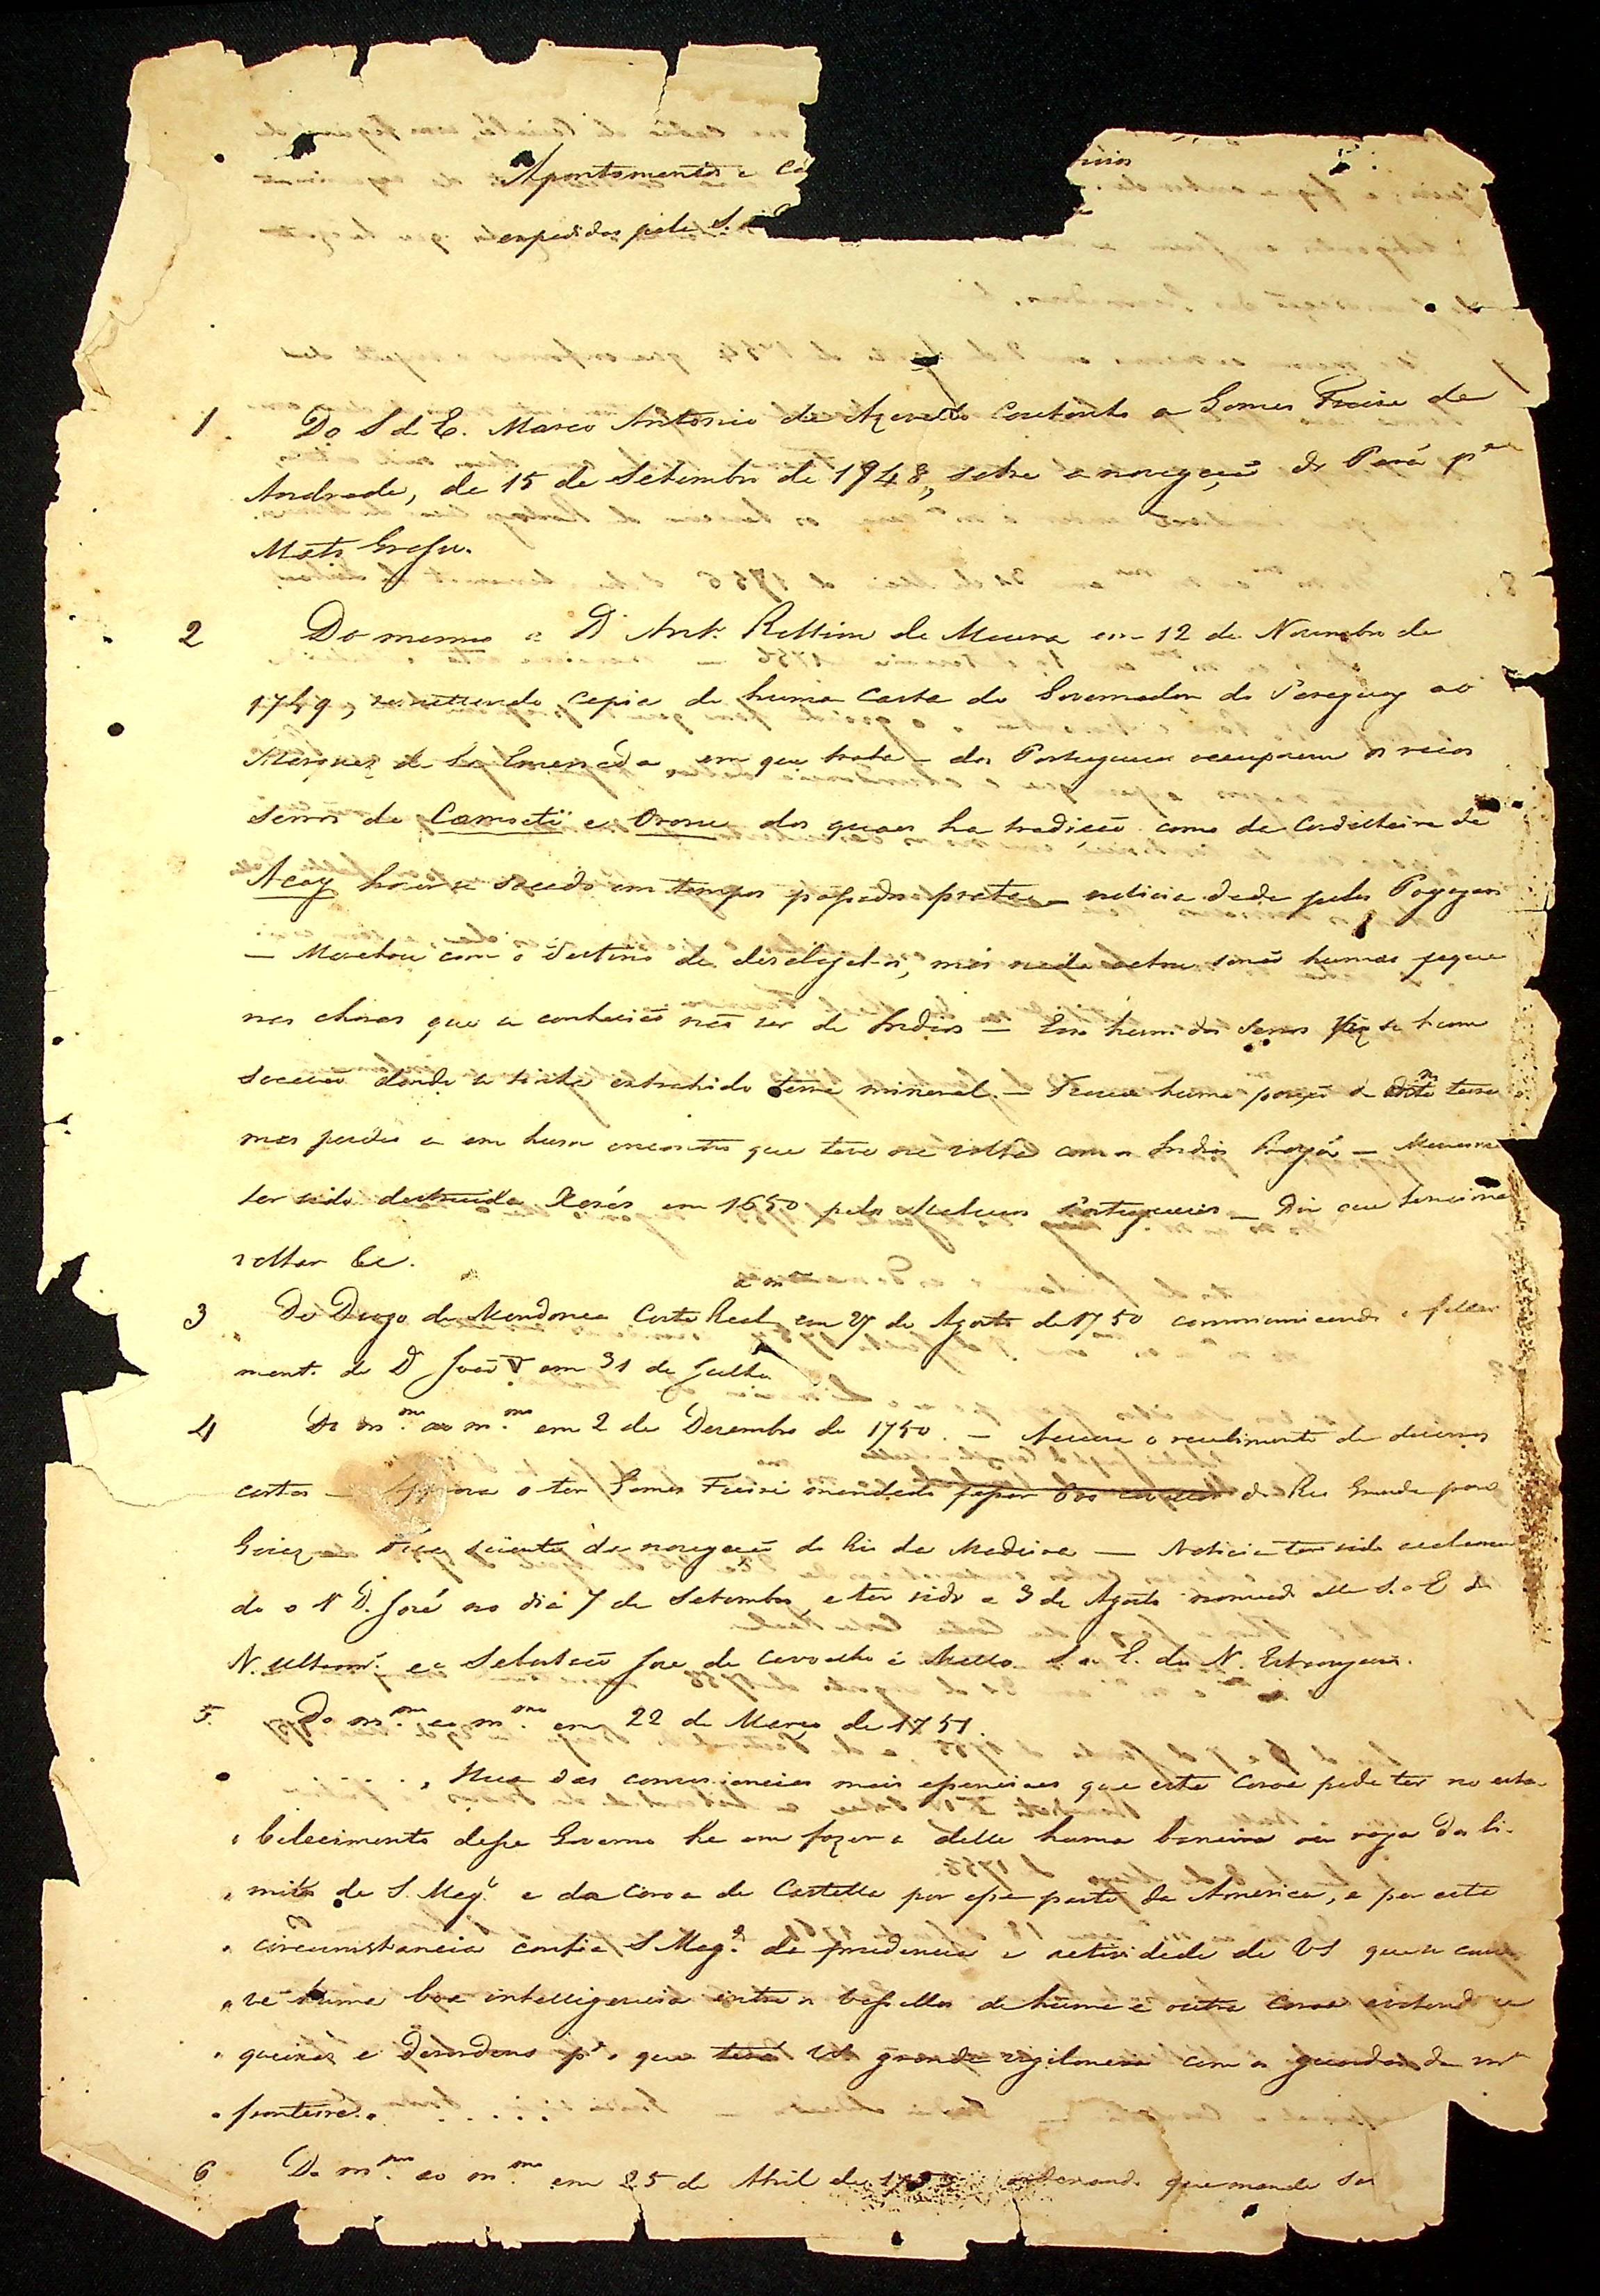 Apontamentos e Co
expedidas pela S.
1 Do S d E. Marco Antonio de Azevedo Coutinho a Gomes Freire de
Andrade, de 15 de Setembro de 1748, sobre a navegação do Pará pa
Mato Grosso.
2 Do mesmo a D Ant. Rollim de Moura em 12 de Novembro de
1749, remettendo copia de huma Carta do Governador do Paraguay ao
Marquez de la Encenada, em que trata dos Portugueses occuparem os
serros de Camoeti e Orone dos quaes ha tradição como da Cordilheira de
Acay haver-se sacado em tempos passados prata — noticia dada pelos Payagoas
— Marchou com o destino de desalojal-os, mas nada achou senão humas peque
nas choças que se conhecião não ser de Indios — Em hum dos serros fez se hum
socavão donde se tinha extrahido terra mineral — Trouce huma porção da dita terra
mas perdeu a em hum encontro que teve na volta com os Indios — Menciona
ter sido destruida Xerés em 1650 pelos Portugueses — Diz que tenciona
voltar &c.
3 De Diogo de Mendonça Corte Real ao mmo em 27 de Agosto de 1750 communicando o falleci
ment. de D João V em 31 de Julho
4 Do m.mo ao m.mo em 2 de Dezembro de 1750. — Accusa o recebimento de diversas
cartas — Approva o ter Gomes Freire mandado passar do Rio Grande para
Goiaz — Fica sciente da navegação do Rio da Madeira — Noticia ter sido acclama
do o S D. José no dia 7 de Setembro, e ter sido a 3 de Agosto nomeado elle S. E do
N. Ultram. e a Sebastião Jose de Carvalho e Mello S. E. dos N. Estrangeiros.
5. Do m.mo ao m.mo em 22 de Março de 1751.
" Hua das conveniencias mais essenciaes que esta Coroa pode ter no esta-
" belecimento desse Governo he em fazer-se delle huma barreira ou raya dos li-
" mites de S. Mag.e e da Coroa de Castella por essa parte da America, e por esta
" circumstancia confia S Mag.e da prudencia e actividade de VS que se conser
" ve huma boa intelligencia entre os Vassallos de huma e outra Coroa evitando se
" queixas e desordens p.a o que terá VS grande vigilancia com a guarda da m.ma
" fronteira.
6 Do m.mo ao m.mo em 25 de Abril de ordenando que mande